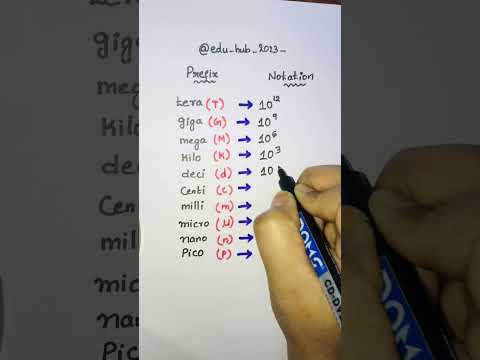 @edu_hub_2023_
Prefix Notation
tera (T) → 10¹²
giga (G) → 10⁹
mega (M) → 10⁶
Kilo (K) → 10³
deci (d) → 10
Centi (c) →
milli (m) →
micro (μ) →
nano (n) →
Pico (P) →
DOMS
CD-DV